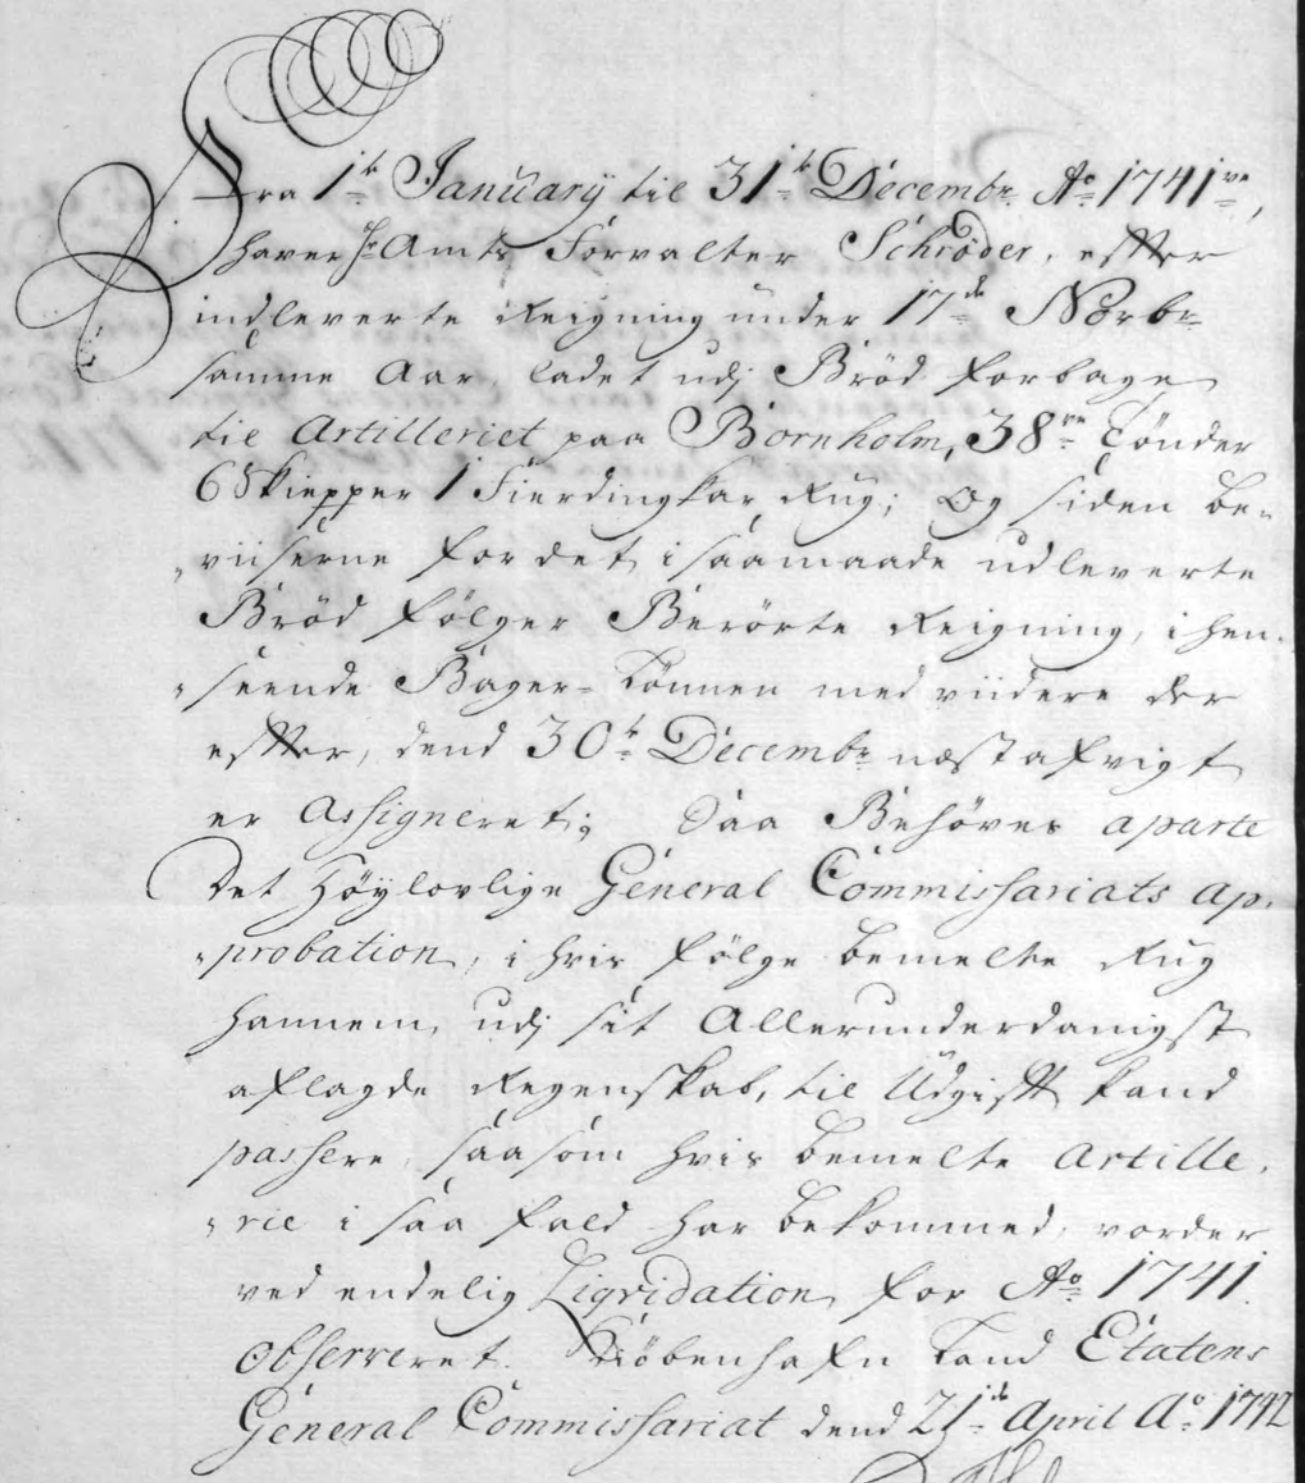 Fra 1te Januarÿ til 31te Decembr Ao 1741ve,
haver Hr Amts Forvalter Schrøder, efter
indleverte Reigning under 17de Novbr
samme Aar, ladet udj Brød forbage
til Artilleriet paa Bornholm, 38ve Tønder
6 Skiepper 1 Fierdingkar Rug; Og siden be-
viiserne for det i saamaade udleverte
Brød følger Berørte Reigning, i hen-
seende Bager-Lønnen med viidere der
efter, dend 30te Decembr næst afvigt
er Assigneret; Saa Behøves aparte
Det Høylovlige General Commissariats ap-
probation, i hvis følge bemelte Rug
hannem, udj sit Allerunderdanigst
aflagde Regenskab, til Udgift kand
passere, saasom hvis bemelte Artille-
rie i saa fald har bekommed, vorder
ved endelig Liqvidation for Ao 1741
observeret. Kiøbenhafn Land Etatens
General Commissariat dend 21de April Ao 1742